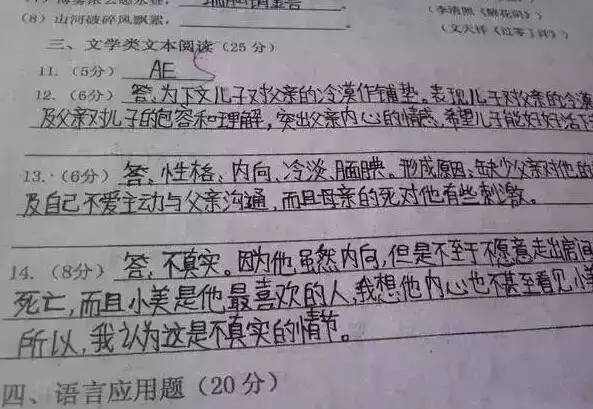 (8) 山河破碎风飘絮，
(李清照《醉花阴》)
(文天祥《过零丁洋》)
三、文学类文本阅读 (25 分)
11. (5分) AE
12. (6分) 答，为下文儿子对父亲的冷漠作铺垫。表现儿子对父亲的冷漠
及父亲对儿子的包容和理解，突出父亲内心的情感，希望儿子能好好活下
13. (6分) 答，性格、内向、冷淡、腼腆。形成原因，缺少父亲对他的
及自己不爱主动与父亲沟通，而且母亲的死对他有些刺激。
14. (8分) 答，不真实。因为他虽然内向，但是不至于不愿意走出房间
死亡，而且小美是他最喜欢的人，我想他内心也不甚至看见小美
所以，我认为这是不真实的情节。
四、语言应用题 (20 分)